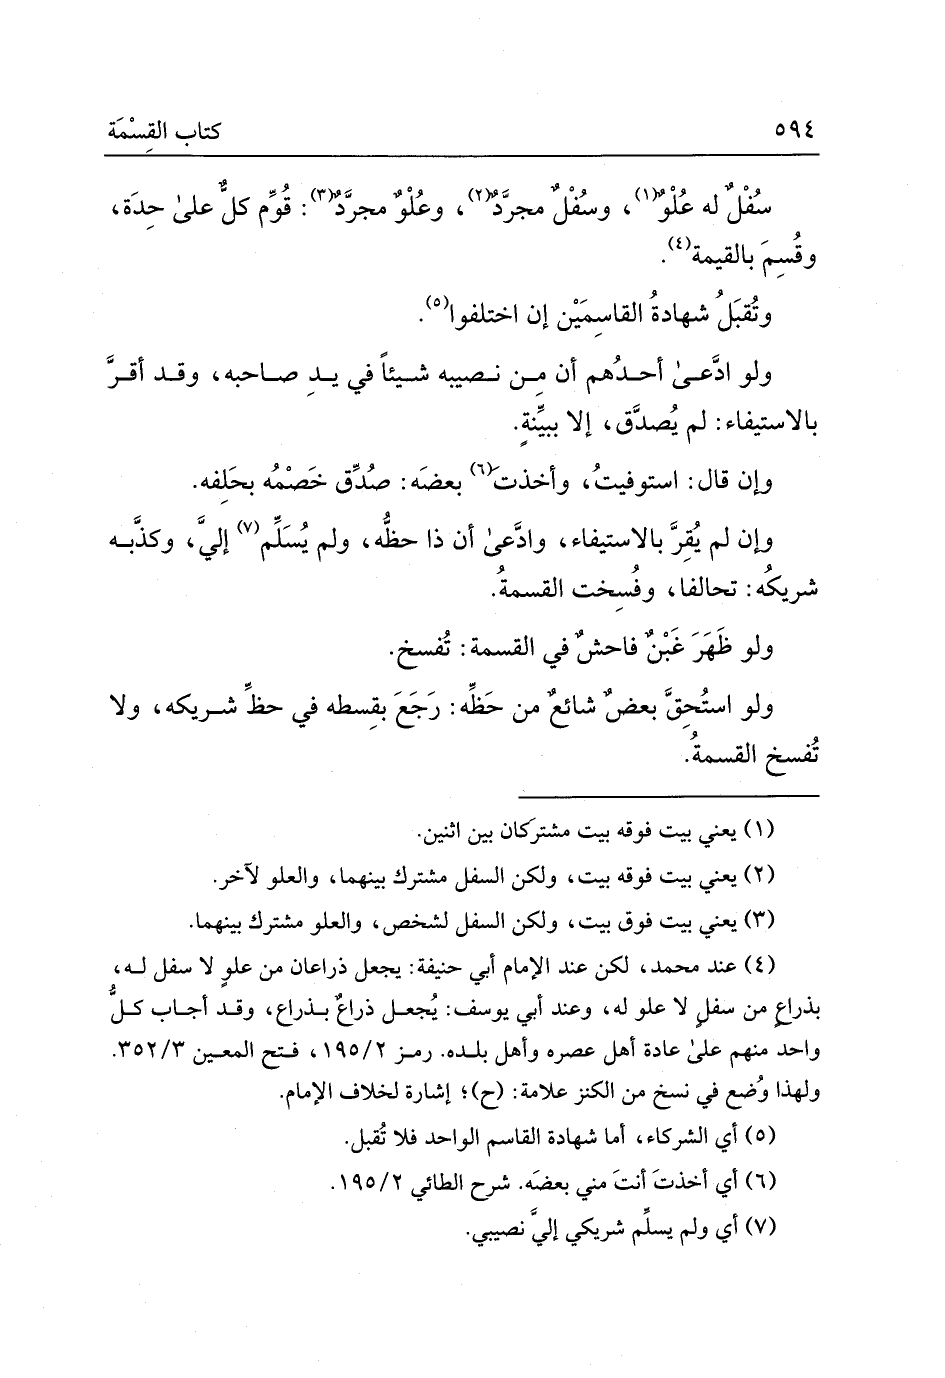 ٥٩٤ كتاب القِسْمَة
سُفْلٌ له عُلْوٌ(١)، وسُفْلٌ مجرَّدٌ(٢)، وعُلْوٌ مجرَّدٌ(٣): قُوِّم كلٌّ علىٰ حِدَة،
وقُسِمَ بالقيمة(٤).
وتُقبَلُ شهادةُ القاسِمَيْن إن اختلفوا(٥).
ولو ادَّعىٰ أحدُهم أن مِن نصيبه شيئاً في يدِ صاحبه، وقد أقرَّ
بالاستيفاء: لم يُصدَّق، إلا ببيِّنةٍ.
وإن قال: استوفيتُ، وأخذتَ(٦) بعضَه: صُدِّق خَصْمُه بحَلِفه.
وإن لم يُقِرَّ بالاستيفاء، وادَّعىٰ أن ذا حظُّه، ولم يُسَلِّم(٧) إليَّ، وكذَّبه
شريكُه: تحالفا، وفُسِخت القسمةُ.
ولو ظَهَرَ غَبْنٌ فاحشٌ في القسمة: تُفسخ.
ولو استُحِقَّ بعضٌ شائعٌ من حَظِّه: رَجَعَ بقِسطه في حظِّ شريكه، ولا
تُفسخ القسمةُ.
(١) يعني بيت فوقه بيت مشتركان بين اثنين.
(٢) يعني بيت فوقه بيت، ولكن السفل مشترك بينهما، والعلو لآخر.
(٣) يعني بيت فوق بيت، ولكن السفل لشخص، والعلو مشترك بينهما.
(٤) عند محمد، لكن عند الإمام أبي حنيفة: يجعل ذراعان من علوٍ لا سفل له،
بذراعٍ من سفلٍ لا علو له، وعند أبي يوسف: يُجعل ذراعٌ بذراع، وقد أجاب كلُّ
واحد منهم علىٰ عادة أهل عصره وأهل بلده. رمز ١٩٥/٢، فتح المعين ٣٥٢/٣.
ولهذا وُضع في نسخ من الكنز علامة: (ح)؛ إشارة لخلاف الإمام.
(٥) أي الشركاء، أما شهادة القاسم الواحد فلا تُقبل.
(٦) أي أخذتَ أنتَ مني بعضَه. شرح الطائي ١٩٥/٢.
(٧) أي ولم يسلِّم شريكي إليَّ نصيبي.